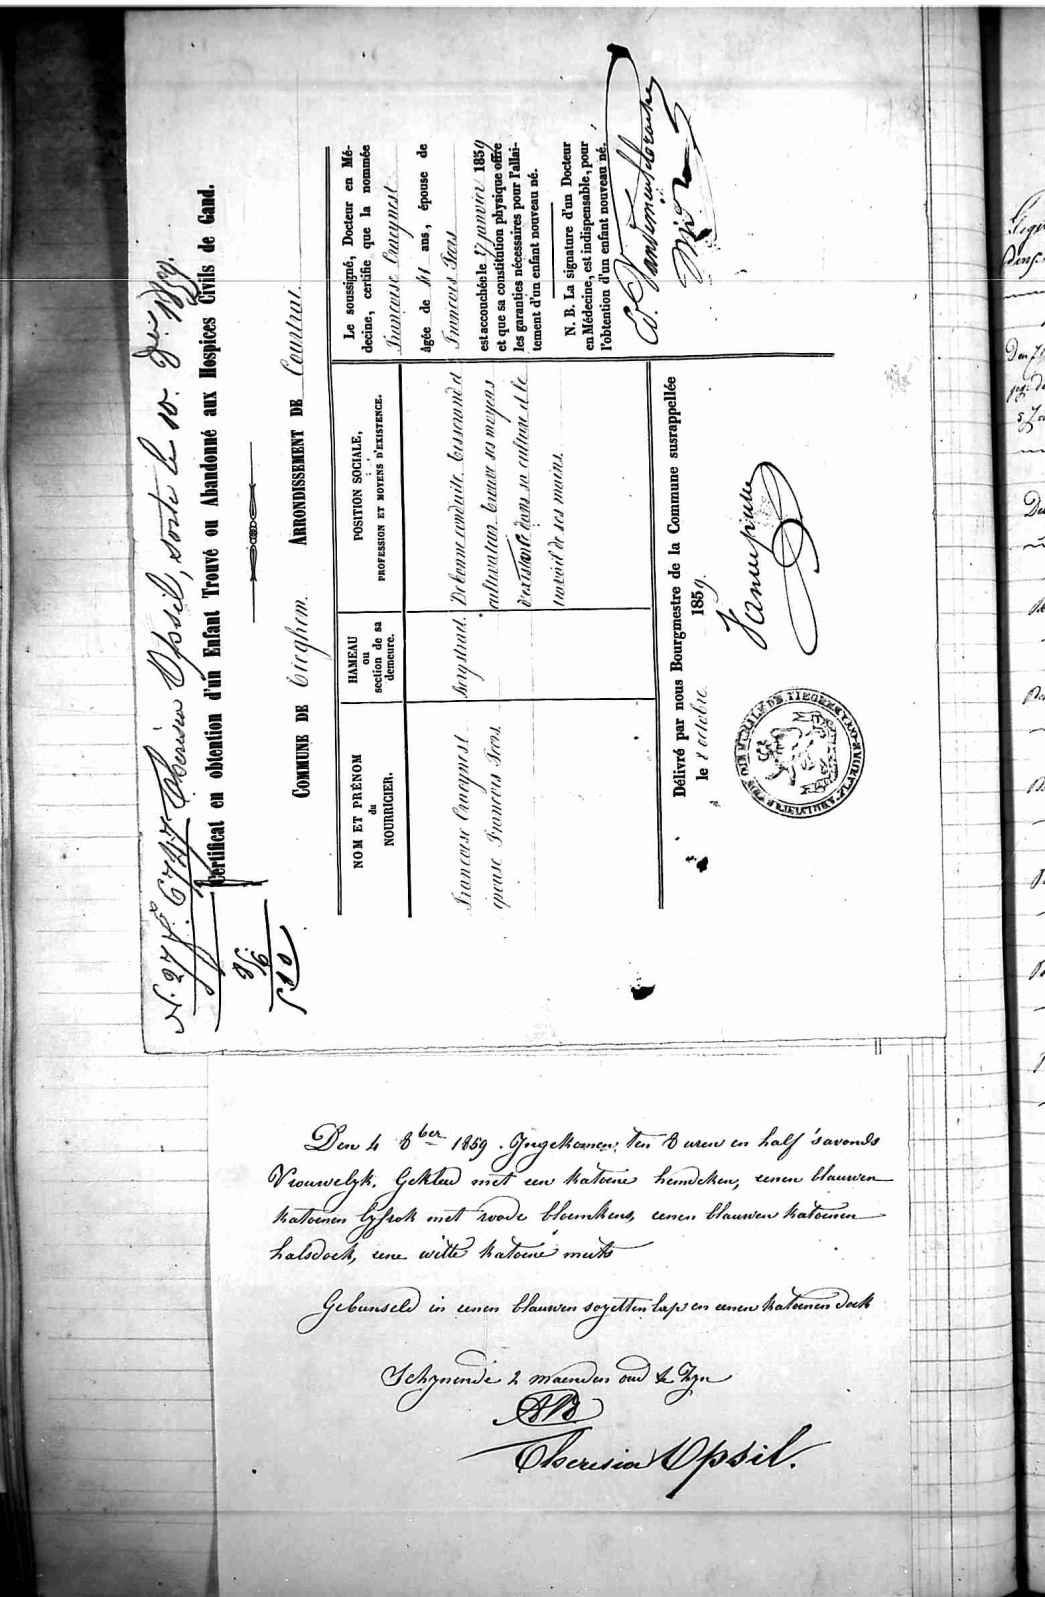 N. 277. f. 6747 Theresia Upsil, sortie le 10. 8bre 1859.
Certificat en obtention d'un Enfant Trouvé ou Abandonné aux Hospices Civils de Gand.
COMMUNE DE Tieghem. ARRONDISSEMENT DE Courtrai.
NOM ET PRÉNOM
du
NOURRICIER.
Francoise Crueynest
épouse Francois Joos
HAMEAU
ou
section de sa
demeure.
POSITION SOCIALE,
PROFESSION ET MOYENS D'EXISTENCE.
De bonne conduite, tisserand et
cultivateur, trouve ses moyens
d'existance dans sa culture et le
travail de ses mains.
Le soussigné, Docteur en Mé-
decine, certifie que la nommée
Francoise Crueynest
âgée de 41 ans, épouse de
Francois Joos
est accouchée le 27 janvier 1859
et que sa constitution physique offre
les garanties nécessaires pour l'allai-
tement d'un enfant nouveau né.
N. B. La signature d'un Docteur
en Médecine, est indispensable, pour
l'obtention d'un enfant nouveau né.
Délivré par nous Bourgmestre de la Commune susrappellée
le 8 octobre 1859.
Den 4 8ber 1859. Ingekomen ten 8 uren en half 's avonds
Vrouwelyk. Gekleed met een katoene hemdeken, eenen blauwen
katoenen lyfrok met roode bloemkens, eenen blauwen katoenen
halsdoek, eene witte katoene muts
Gebunseld in eenen blauwen sayetten lap en eenen katoenen doek
Schynende 2 maenden oud te zyn
Theresia Upsil.